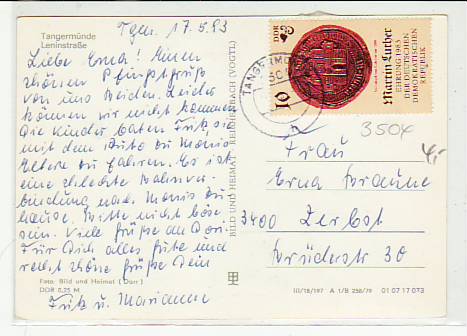 Tangermünde
Leninstraße
Tgm. 17.5.83
Liebe Erna! Einen
schönen Pfingstgruß
von uns beiden. Leider
können wir nicht kommen
Die Kinder baten Fritz, sie
mit dem Auto zu
Eltern zu fahren. Es ist
eine schlechte Bahnver-
bindung nach
hause. Bitte nicht böse
sein. Viele Grüße an Dori.
Für Dich alles gute und
recht schöne Grüße Dein
Fritz u. Marianne
Foto: Bild und Heimat (Darr)
DDR 0,25 M
BILD UND HEIMAT REICHENBACH (VOGTL)
TANGERMÜ
DDR
10
Martin Luther
EHRUNG 1983
DER DEUTSCHEN
DEMOKRATISCHEN
REPUBLIK
3504
4,-
Frau
Erna Braune
3400 Zerbst
Brüderstr 30
III/18/197 A 1/B 256/79 01 07 17 073